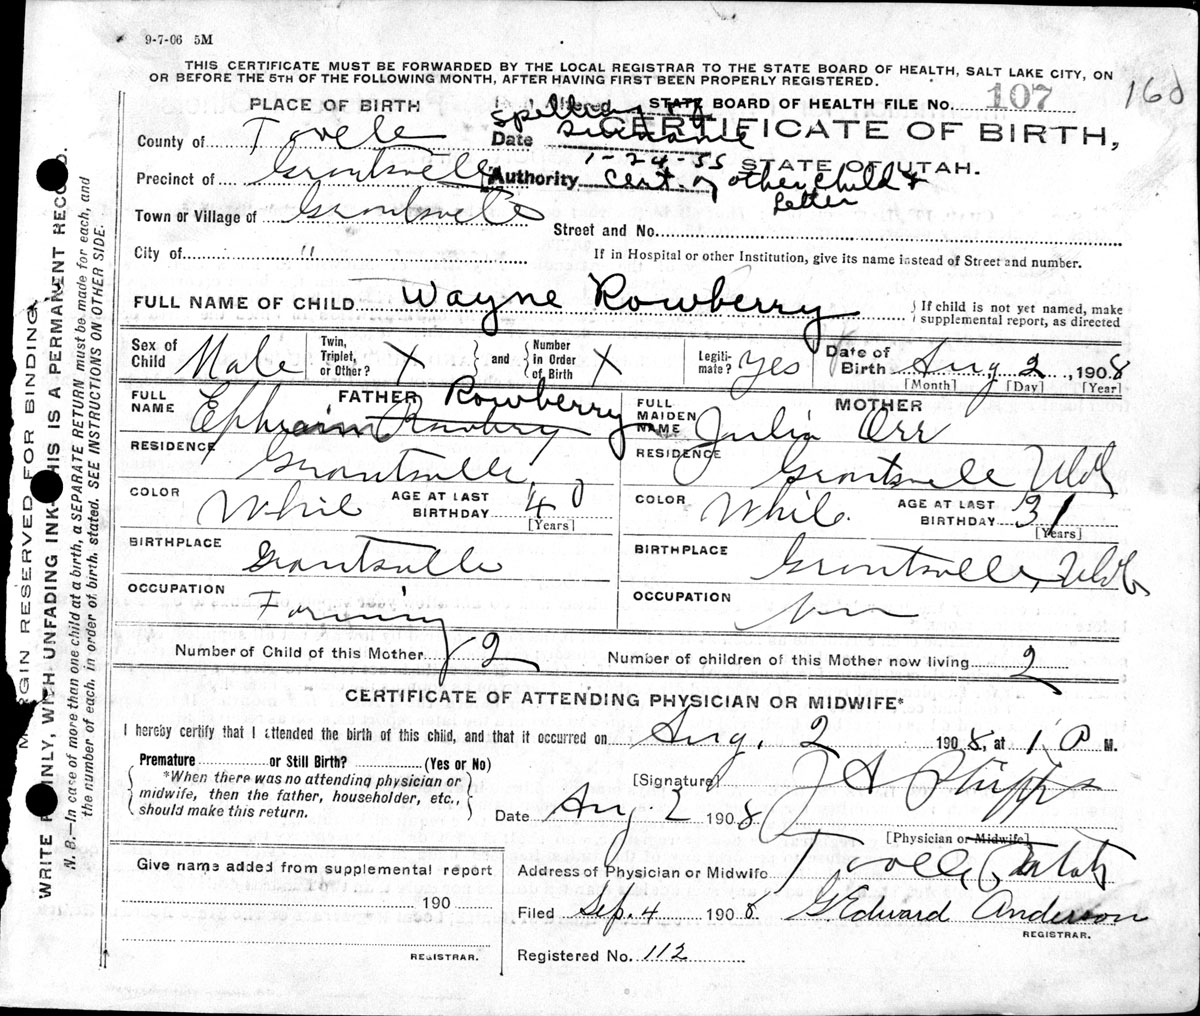 9-7-06 5M
THIS CERTIFICATE MUST BE FORWARDED BY THE LOCAL REGISTRAR TO THE STATE BOARD OF HEALTH, SALT LAKE CITY, ON
OR BEFORE THE 5TH OF THE FOLLOWING MONTH, AFTER HAVING FIRST BEEN PROPERLY REGISTERED.
PLACE OF BIRTH
STATE BOARD OF HEALTH FILE NO. 107 160
spelling of
County of Tooele
Date surname
CERTIFICATE OF BIRTH,
1-24-55 STATE OF UTAH.
Precinct of Grantsville
Authority Cert. of other child &
Letter
Town or Village of Grantsville
Street and No.
City of "
If in Hospital or other Institution, give its name instead of Street and number.
FULL NAME OF CHILD Wayne Rowberry
If child is not yet named, make supplemental report, as directed
Sex of Child Male
Twin, Triplet, or Other? X
and Number in Order of Birth X
Legitimate? yes
Date of Birth Aug 2, 1908
[Month] [Day] [Year]
FATHER
FULL NAME Ephraim Rowberry
MOTHER
FULL MAIDEN NAME Julia Orr
RESIDENCE Grantsville
RESIDENCE Grantsville Utah
COLOR White AGE AT LAST BIRTHDAY 40
[Years]
COLOR White. AGE AT LAST BIRTHDAY 31
[Years]
BIRTHPLACE Grantsville
BIRTHPLACE Grantsville, Utah
OCCUPATION Farming
OCCUPATION
Number of Child of this Mother 2
Number of children of this Mother now living 2
CERTIFICATE OF ATTENDING PHYSICIAN OR MIDWIFE*
I hereby certify that I attended the birth of this child, and that it occurred on Aug. 2 1908, at 1 P M.
Premature or Still Birth? (Yes or No)
*When there was no attending physician or
midwife, then the father, householder, etc.,
should make this return.
[Signature] J A Phipps
Date Aug 2 1908
[Physician or Midwife]
Address of Physician or Midwife Tooele, Utah
Give name added from supplemental report
190
REGISTRAR.
Filed Sep. 4 1908 G. Edward Anderson
REGISTRAR.
Registered No. 112
MARGIN RESERVED FOR BINDING.
WRITE PLAINLY, WITH UNFADING INK—THIS IS A PERMANENT RECORD.
N. B.—In case of more than one child at a birth, a SEPARATE RETURN must be made for each, and
the number of each, in order of birth, stated. SEE INSTRUCTIONS ON OTHER SIDE.